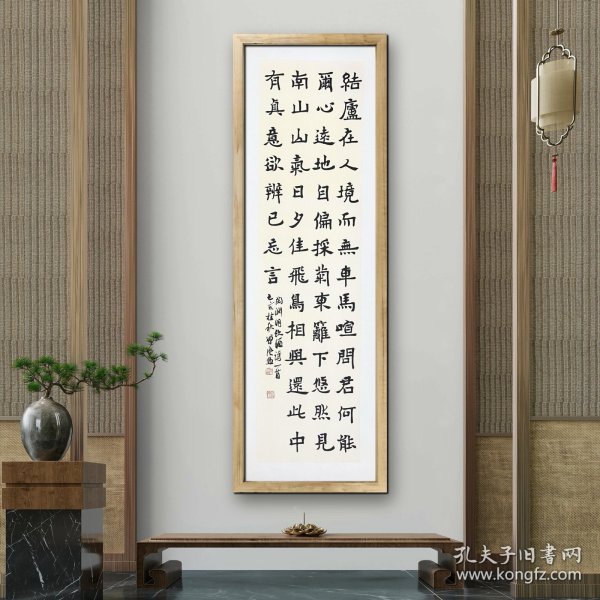 結廬在人境而無車馬喧問君何能
爾心遠地自偏採菊東籬下悠然見
南山山氣日夕佳飛鳥相與還此中
有真意欲辨已忘言
陶淵明飲酒詩一首
孔夫子旧书网
www.kongfz.com